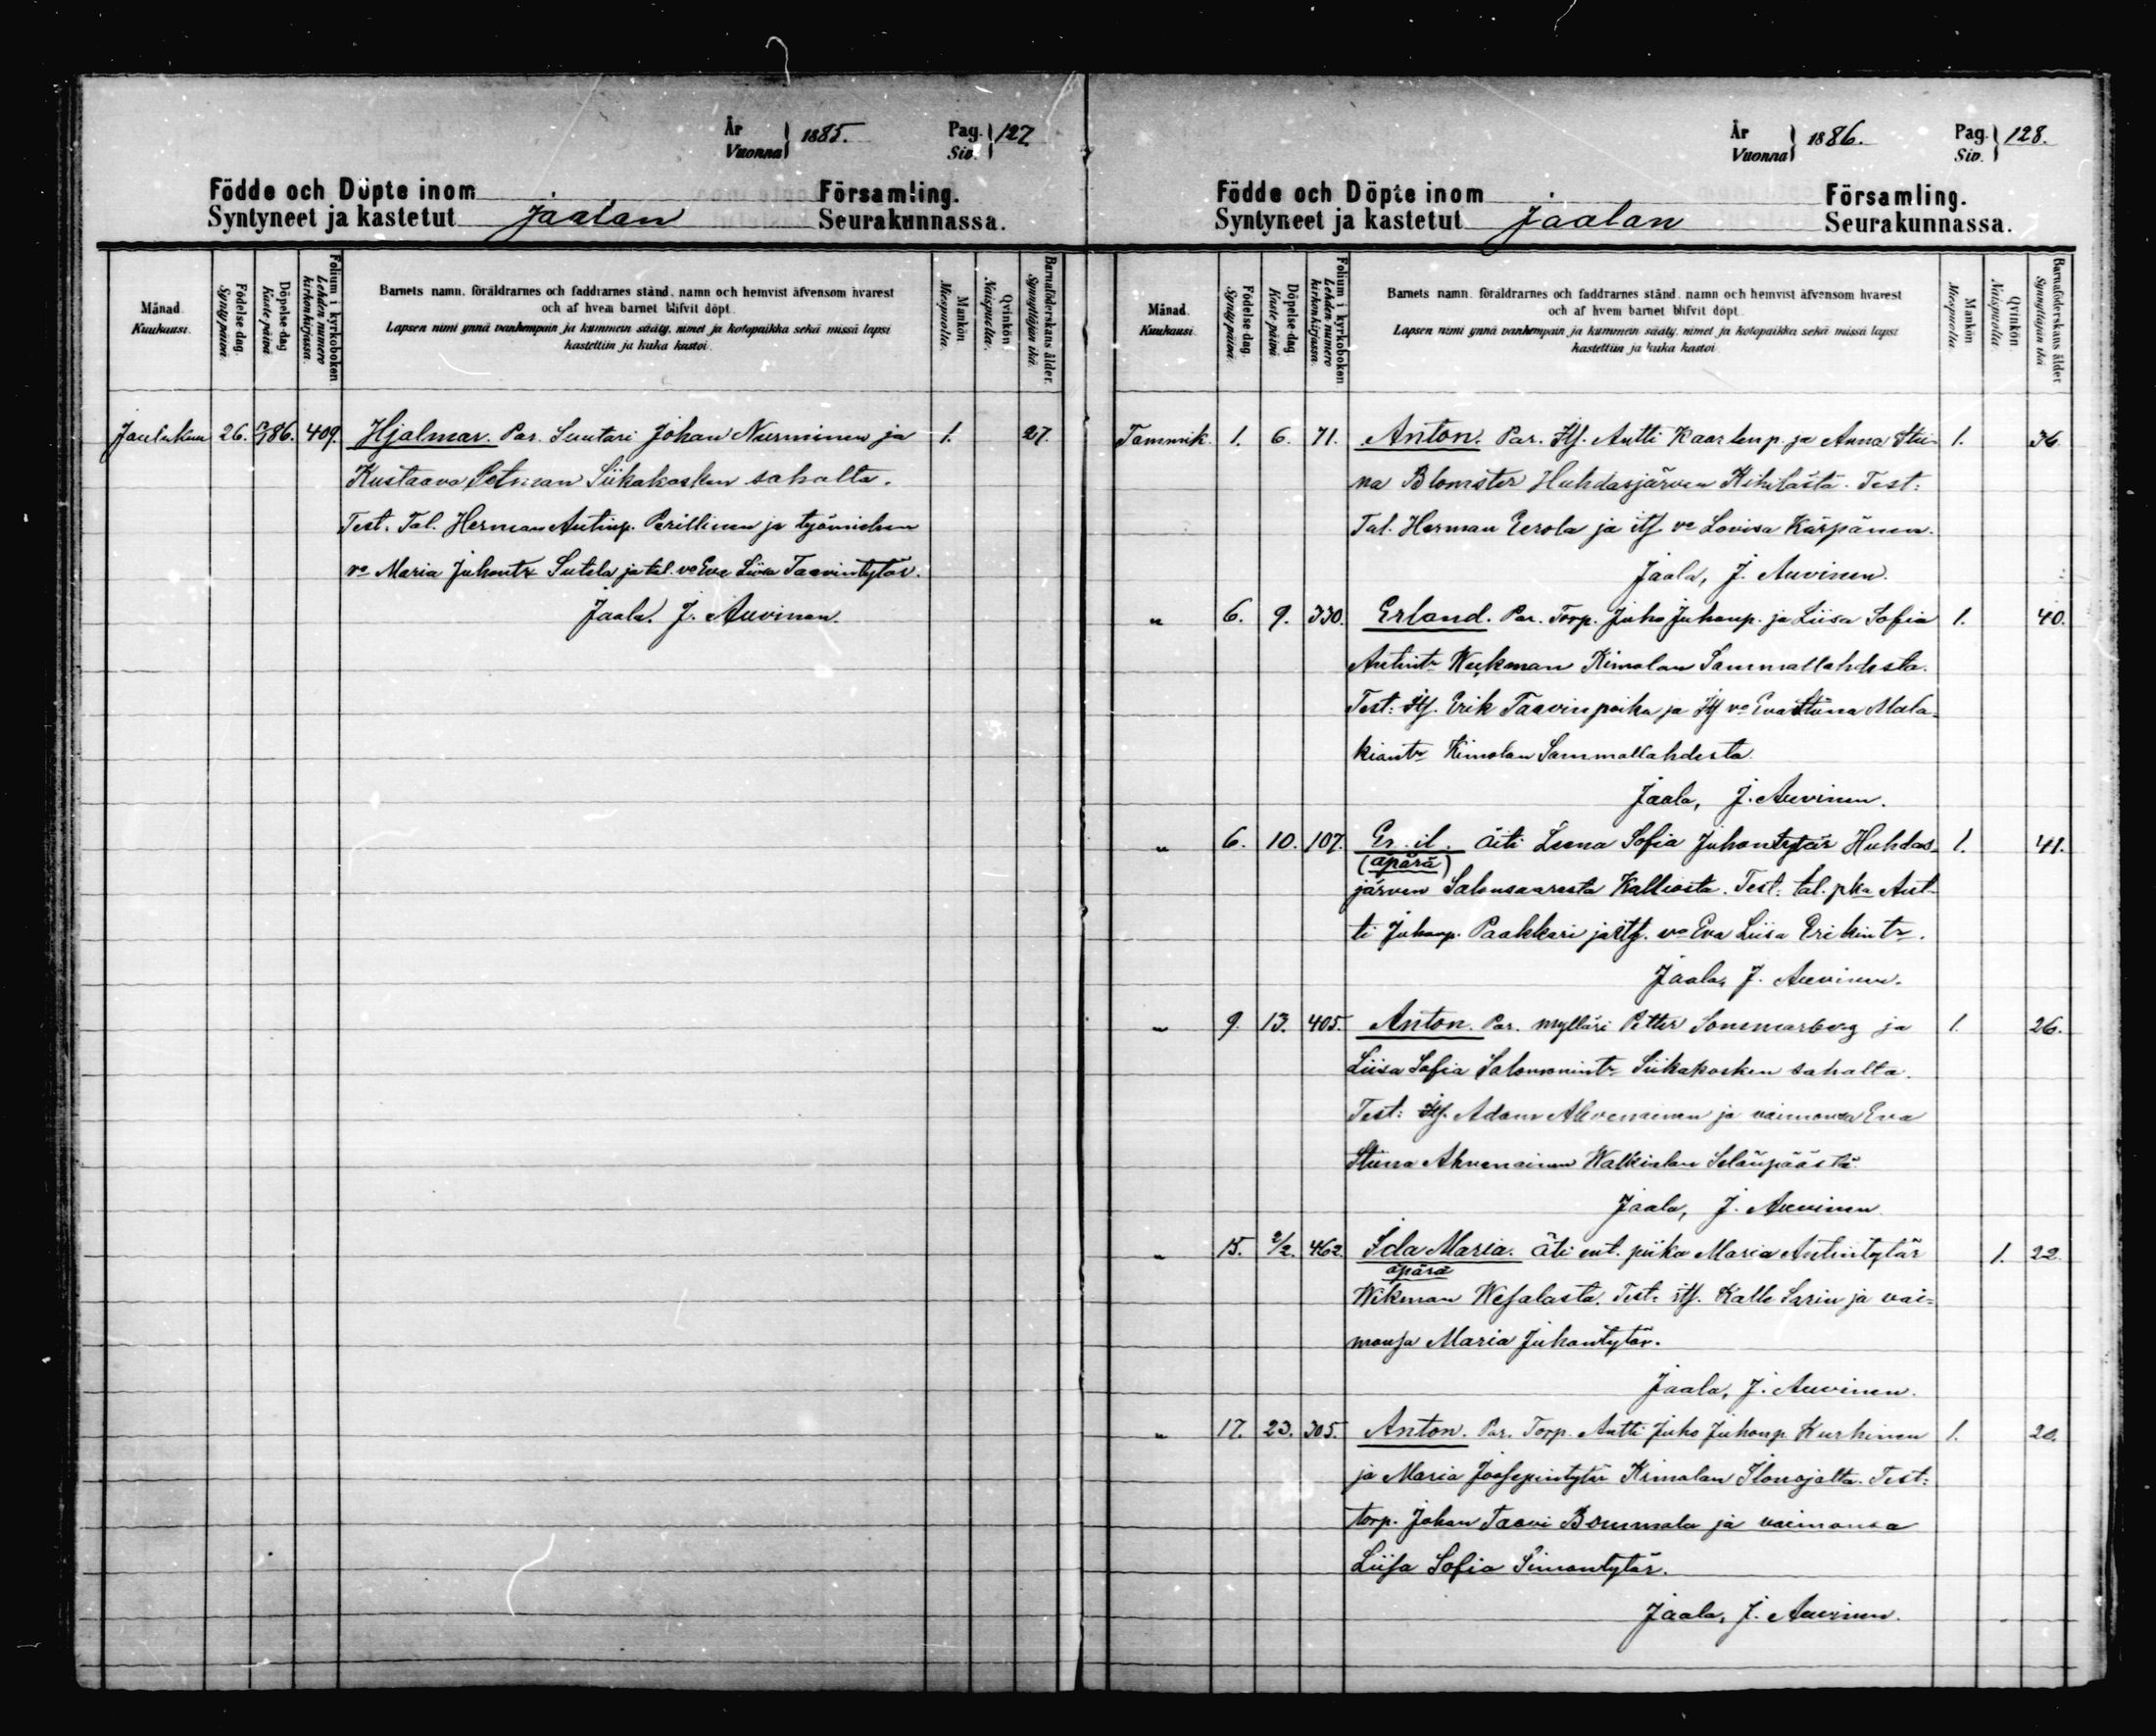 År
Vuonna } 1885. Pag.
Siv. } 127
Födde och Döpte inom Församling.
Syntyneet ja kastetut Jaalan Seurakunnassa.
Månad. Kuukausi.
Födelse dag. Synty päivä.
Döpelse dag Kaste päivä
Folium i kyrkoboken Lehden numero kirkonkirjassa.
Barnets namn, föräldrarnes och faddrarnes stånd, namn och hemvist äfvensom hvarest
och af hvem barnet blifvit döpt.
Lapsen nimi ynnä vanhempain ja kummein sääty, nimet ja kotopaikka sekä missä lapsi
kastettiin ja kuka kastoi.
Mankön Miespuolia.
Qvinkön Naispuolia.
Barnaföderskans ålder. Synnyttäjän ikä
Joulukuu 26. 86. 409. Hjalmar. Par. Suutari Johan Nurminen ja 1. 27.
Kustaava Siikakosken sahalta.
Test. Tal. Herman Antinp. Perillinen ja työmiehen
vo Maria Juhontr Sutela ja tal. vo Eva Liisa Taavintytär.
Jaala. J. Auvinen.
År
Vuonna } 1886. Pag.
Siv. } 128.
Födde och Döpte inom Församling.
Syntyneet ja kastetut Jaalan Seurakunnassa.
Månad. Kuukausi.
Födelse dag. Synty päivä.
Döpelse dag Kaste päivä.
Folium i kyrkoboken Lehden numero kirkonkirjassa.
Barnets namn, föräldrarnes och faddrarnes stånd, namn och hemvist äfvensom hvarest
och af hvem barnet blifvit döpt.
Lapsen nimi ynnä vanhempain ja kummein sääty, nimet ja kotopaikka sekä missä lapsi
kastettiin ja kuka kastoi.
Mankön Miespuolia.
Qvinkön Naispuolia.
Barnaföderskans ålder Synnyttäjän ikä
Tammik. 1. 6. 71. Anton. Par. Itf. Antti Kaarlenp. ja Anna Stii- 1. 36.
na Blomster Huhdasjärven Test:
Tal. Herman Eerola ja itf. vo Lovisa Kärpänen.
Jaala, J. Auvinen.
" 6. 9. 330. Erland. Par. Torp. Juho Juhonp. ja Liisa Sofia 1. 40.
Antintr Wickman Kimolan Sammallahdesta.
Test: Itf. Erik Taavinpoika ja Itf vo Eva Stiina Mala-
kiantr Kimolan Sammallahdesta.
Jaala, J. Auvinen.
" 6. 10. 107. äiti Leena Sofia Juhontytär Huhdas- 1. 41.
(äpärä)
järven Salonsaaresta Kalliosta. Test: tal. pka Ant-
ti Juhonp. Paakkari ja itf. vo Eva Liisa Erikintr.
Jaala, J. Auvinen.
" 9. 13. 405. Anton. Par. mylläri Petter Sommarberg ja 1. 26.
Liisa Sofia Salomonintr Siikakosken sahalta.
Test: Itf. Adam Ahvenainen ja vaimonsa Eva
Stiina Ahvenainen Walkialan Selänpäästä.
Jaala, J. Auvinen.
" 15. 2/2. 462. Ida Maria. Äiti ent. piika Maria Antintytär 1. 22.
äpärä
Wikman Wesalasta. Test: itf. Kalle Sarin ja vai-
monsa Maria Juhontytär.
Jaala, J. Auvinen.
" 17. 23. 305. Anton. Par. Torp. Antti Juho Juhonp. Kurhinen 1. 20.
ja Maria Joosepintytär Kimolan Ilonojalta. Test:
torp. Johan Taavi Bommala ja vaimonsa
Liisa Sofia Simontytär.
Jaala, J. Auvinen.